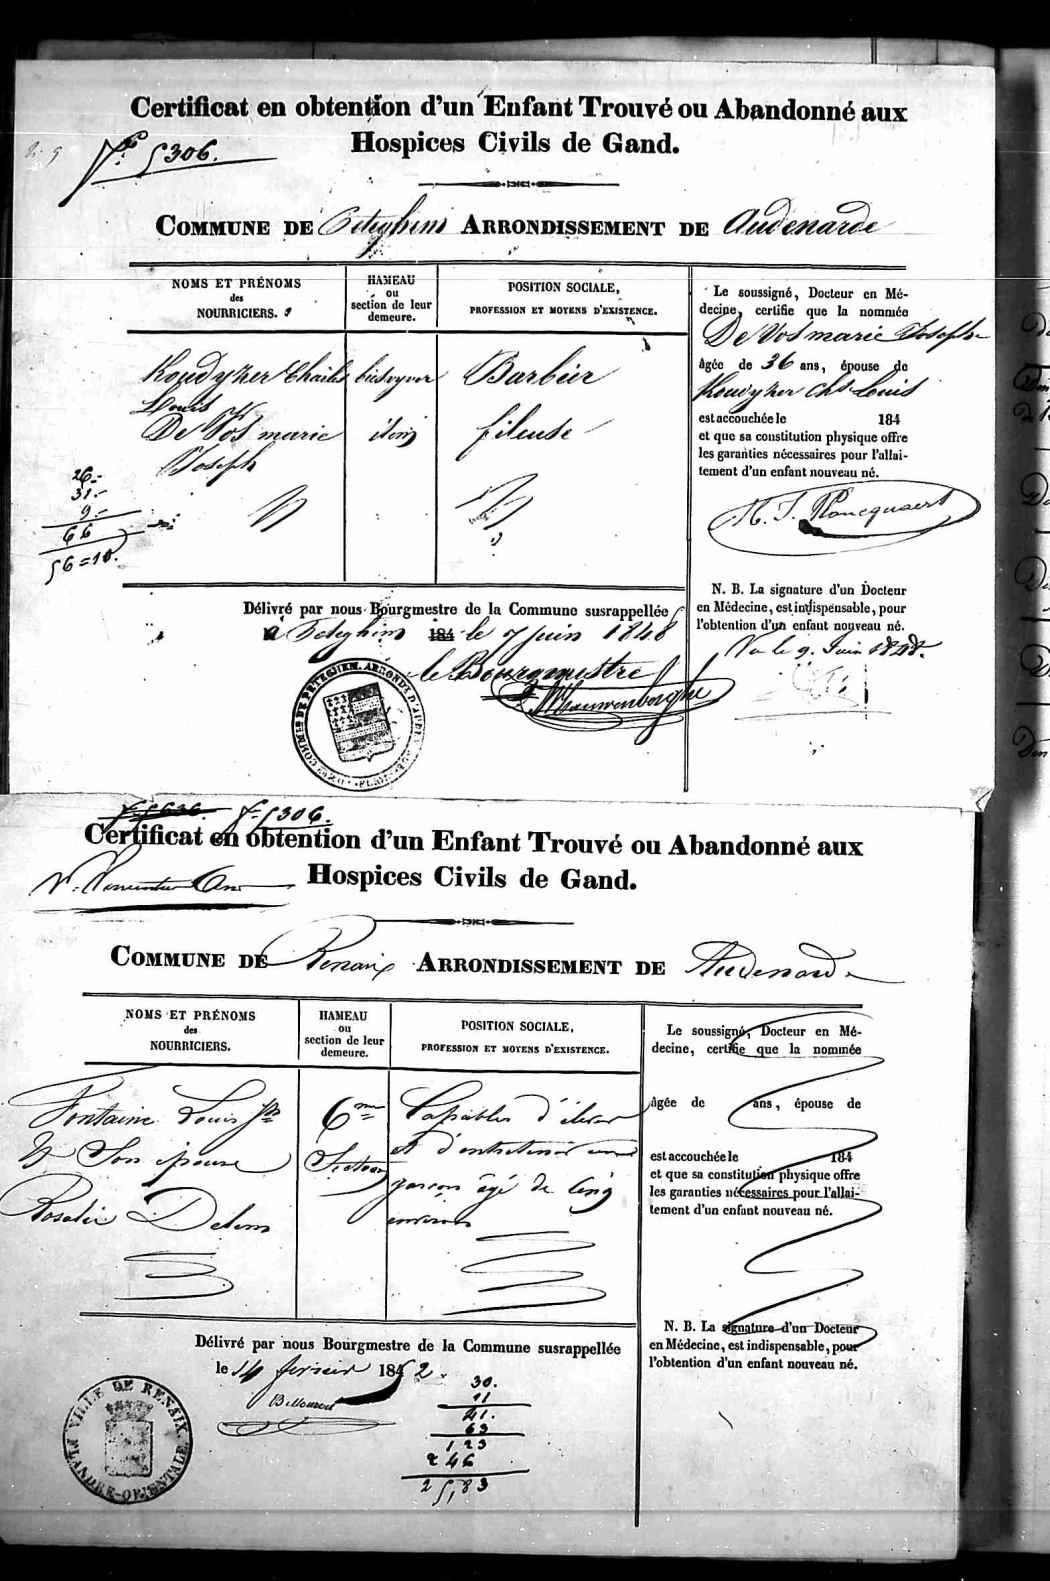 Certificat en obtention d'un Enfant Trouvé ou Abandonné aux
Hospices Civils de Gand.
f.º 5306.
COMMUNE DE Peteghem ARRONDISSEMENT DE Audenarde
NOMS ET PRÉNOMS
des
NOURRICIERS.
HAMEAU
ou
section de leur
demeure.
POSITION SOCIALE,
PROFESSION ET MOYENS D'EXISTENCE.
Charles Barbier
Louis
De Vos marie fileuse
Joseph
26.-
31.-
9.-
66
56=10.
Le soussigné, Docteur en Mé-
decine, certifie que la nommée
De Vos marie Joseph
âgée de 36 ans, épouse de
chs Louis
est accouchée le 184
et que sa constitution physique offre
les garanties nécessaires pour l'allai-
tement d'un enfant nouveau né.
N. B. La signature d'un Docteur
en Médecine, est indispensable, pour
l'obtention d'un enfant nouveau né.
Vu le 9. Juin 1848.
Délivré par nous Bourgmestre de la Commune susrappellée
à Peteghem 184 le 7 juin 1848
le Bourgmestre
f. 5306.
Certificat en obtention d'un Enfant Trouvé ou Abandonné aux
Hospices Civils de Gand.
COMMUNE DE Renaix ARRONDISSEMENT DE Audenarde
NOMS ET PRÉNOMS
des
NOURRICIERS.
HAMEAU
ou
section de leur
demeure.
POSITION SOCIALE,
PROFESSION ET MOYENS D'EXISTENCE.
Fontaine Louis 6me Capables d'élever
& Son épouse Section et d'entretenir un
Rosalie garçon âgé de cinq
environs
Le soussigné, Docteur en Mé-
decine, certifie que la nommée
âgée de ans, épouse de
est accouchée le 184
et que sa constitution physique offre
les garanties nécessaires pour l'allai-
tement d'un enfant nouveau né.
N. B. La signature d'un Docteur
en Médecine, est indispensable, pour
l'obtention d'un enfant nouveau né.
Délivré par nous Bourgmestre de la Commune susrappellée
le 14 fevrier 1852.
30.
11
41.
63
123
246
25,83
VILLE DE RENAIX
FLANDRE-ORIENTALE